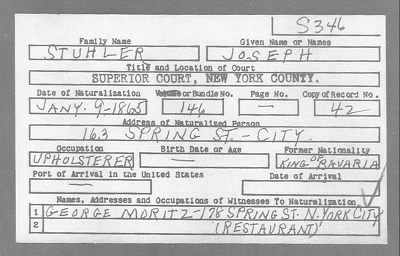 S346
Family Name Given Name or Names
STUHLER JOSEPH
Title and Location of Court
SUPERIOR COURT, NEW YORK COUNTY.
Date of Naturalization Volume or Bundle No. Page No. Copy of Record No.
JANY. 9-1865 146 — 42
Address of Naturalized Person
163 SPRING ST. - CITY.
Occupation Birth Date or Age Former Nationality
UPHOLSTERER — KING OF BAVARIA
Port of Arrival in the United States Date of Arrival
—
Names, Addresses and Occupations of Witnesses To Naturalization
1 GEORGE MORITZ-178 SPRING ST. N. YORK CITY
2 (RESTAURANT)